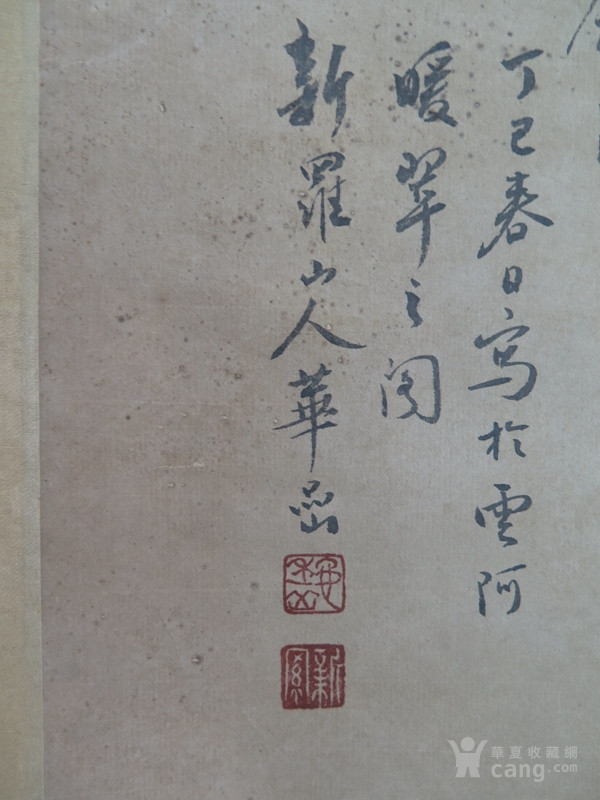 丁巳春日寫於雲阿
暖翠之閣
新羅山人華嵒
華夏收藏網
cang.com